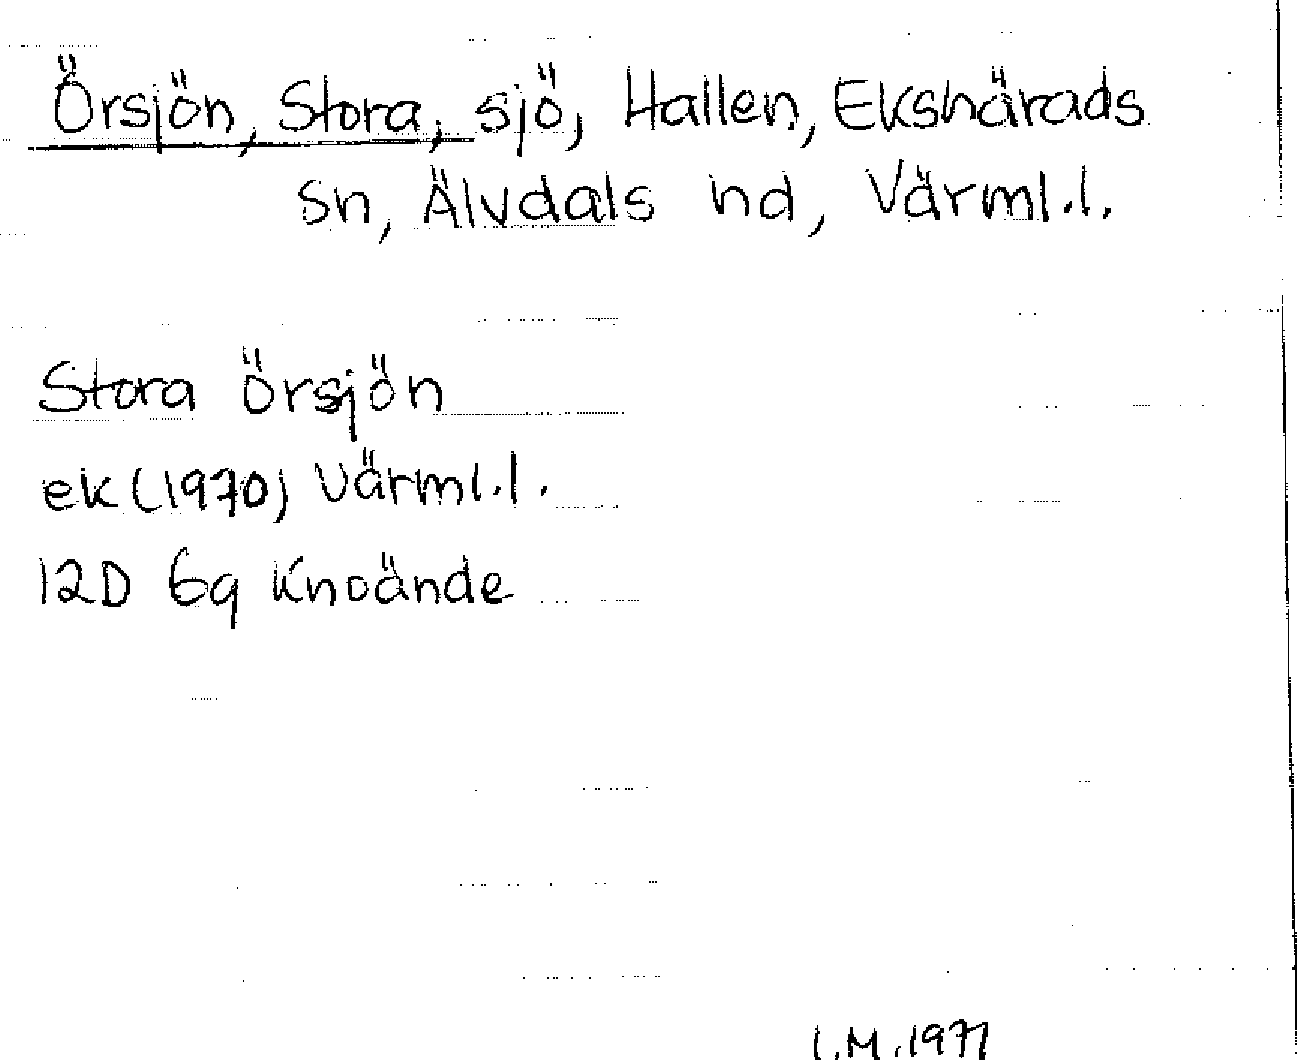 Örsjön, Stora, sjö, Hallen, Ekshärads
sn, Älvdals hd, Värml.l.
Stora Örsjön
ek (1970) Värml.l.
12D 6g Knoände
I.M. 1977